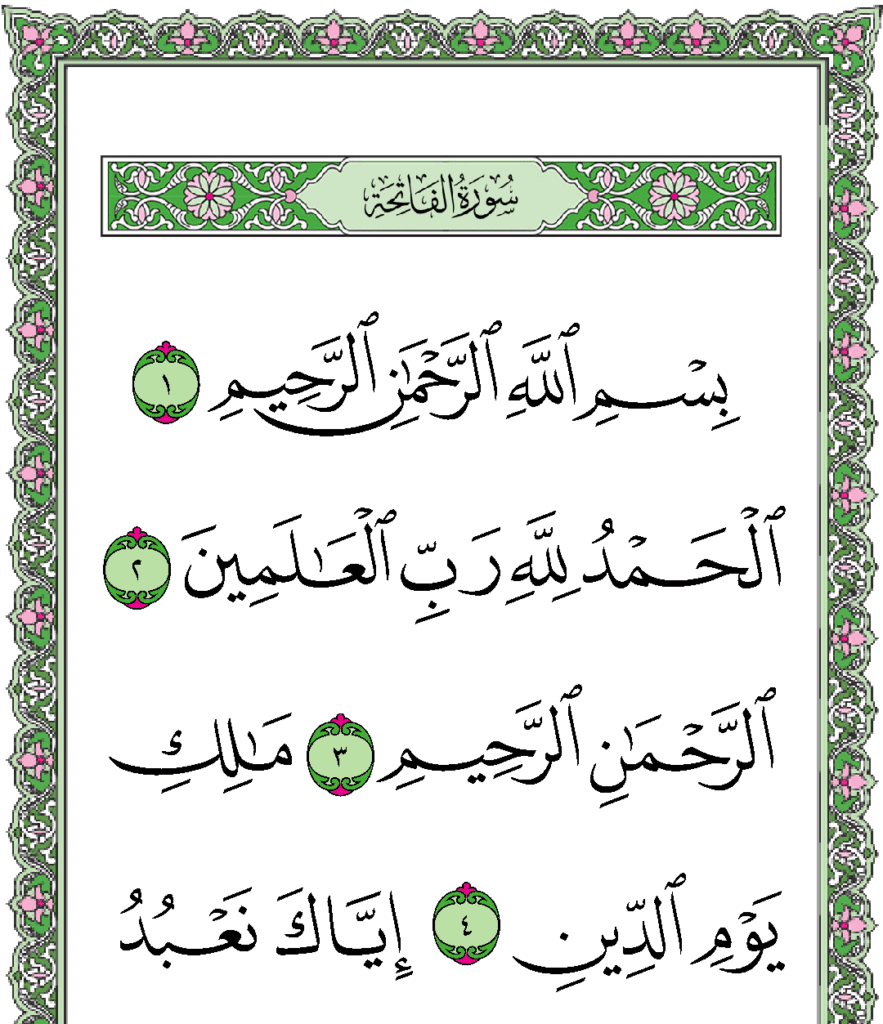 سُورَةُ الفَاتِحَةِ
بِسْمِ ٱللَّهِ ٱلرَّحْمَٰنِ ٱلرَّحِيمِ ١
ٱلْحَمْدُ لِلَّهِ رَبِّ ٱلْعَٰلَمِينَ ٢
ٱلرَّحْمَٰنِ ٱلرَّحِيمِ ٣ مَٰلِكِ
يَوْمِ ٱلدِّينِ ٤ إِيَّاكَ نَعْبُدُ